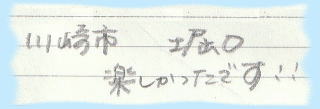 川崎市 堀口
楽しかったです!!